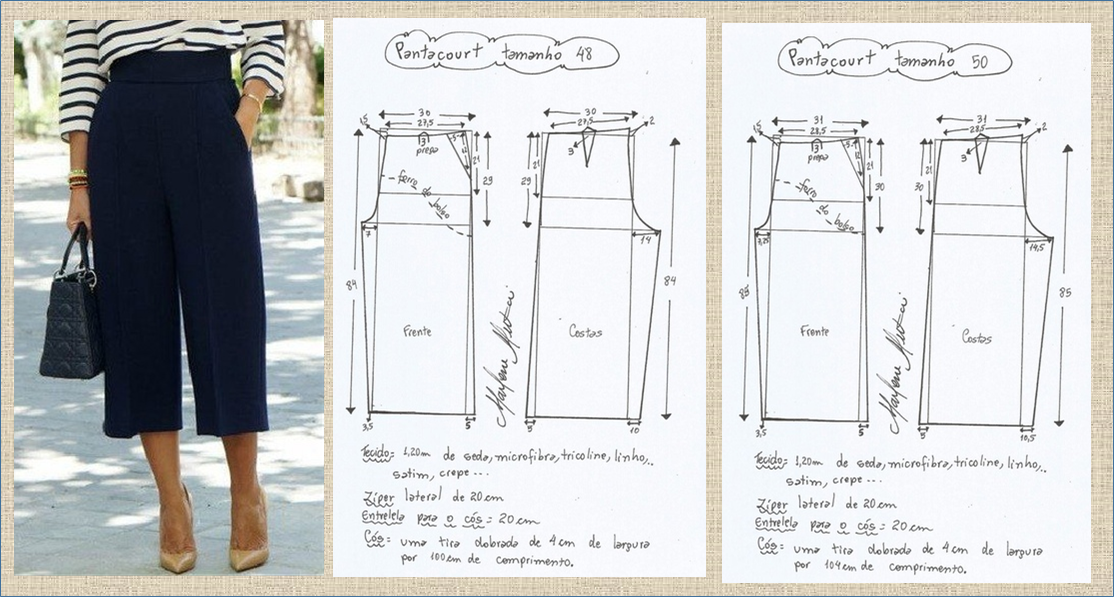 Pantacourt tamanho 48
30
27,5
1,5
3
prega
5
12
21
29
forro do bolso
7
84
Frente
3,5
5
30
27,5
2
3
21
29
14
84
Costas
5
10
Marlene Mukai
Tecido: 1,20m de seda, microfibra, tricoline, linho,..
satim, crepe ...
Zíper lateral de 20cm
Entretela para o cós = 20cm
Cós = uma tira dobrada de 4cm de largura
por 100cm de comprimento.
Pantacourt tamanho 50
31
28,5
1,5
3
prega
5
21
30
forro do bolso
7,25
85
Frente
3,5
5
31
28,5
2
3
21
30
14,5
85
Costas
5
10,5
Marlene Mukai
Tecido: 1,20m de seda, microfibra, tricoline, linho,..
satim, crepe ...
Zíper lateral de 20cm
Entretela para o cós = 20cm
Cós = uma tira dobrada de 4cm de largura
por 104cm de comprimento.